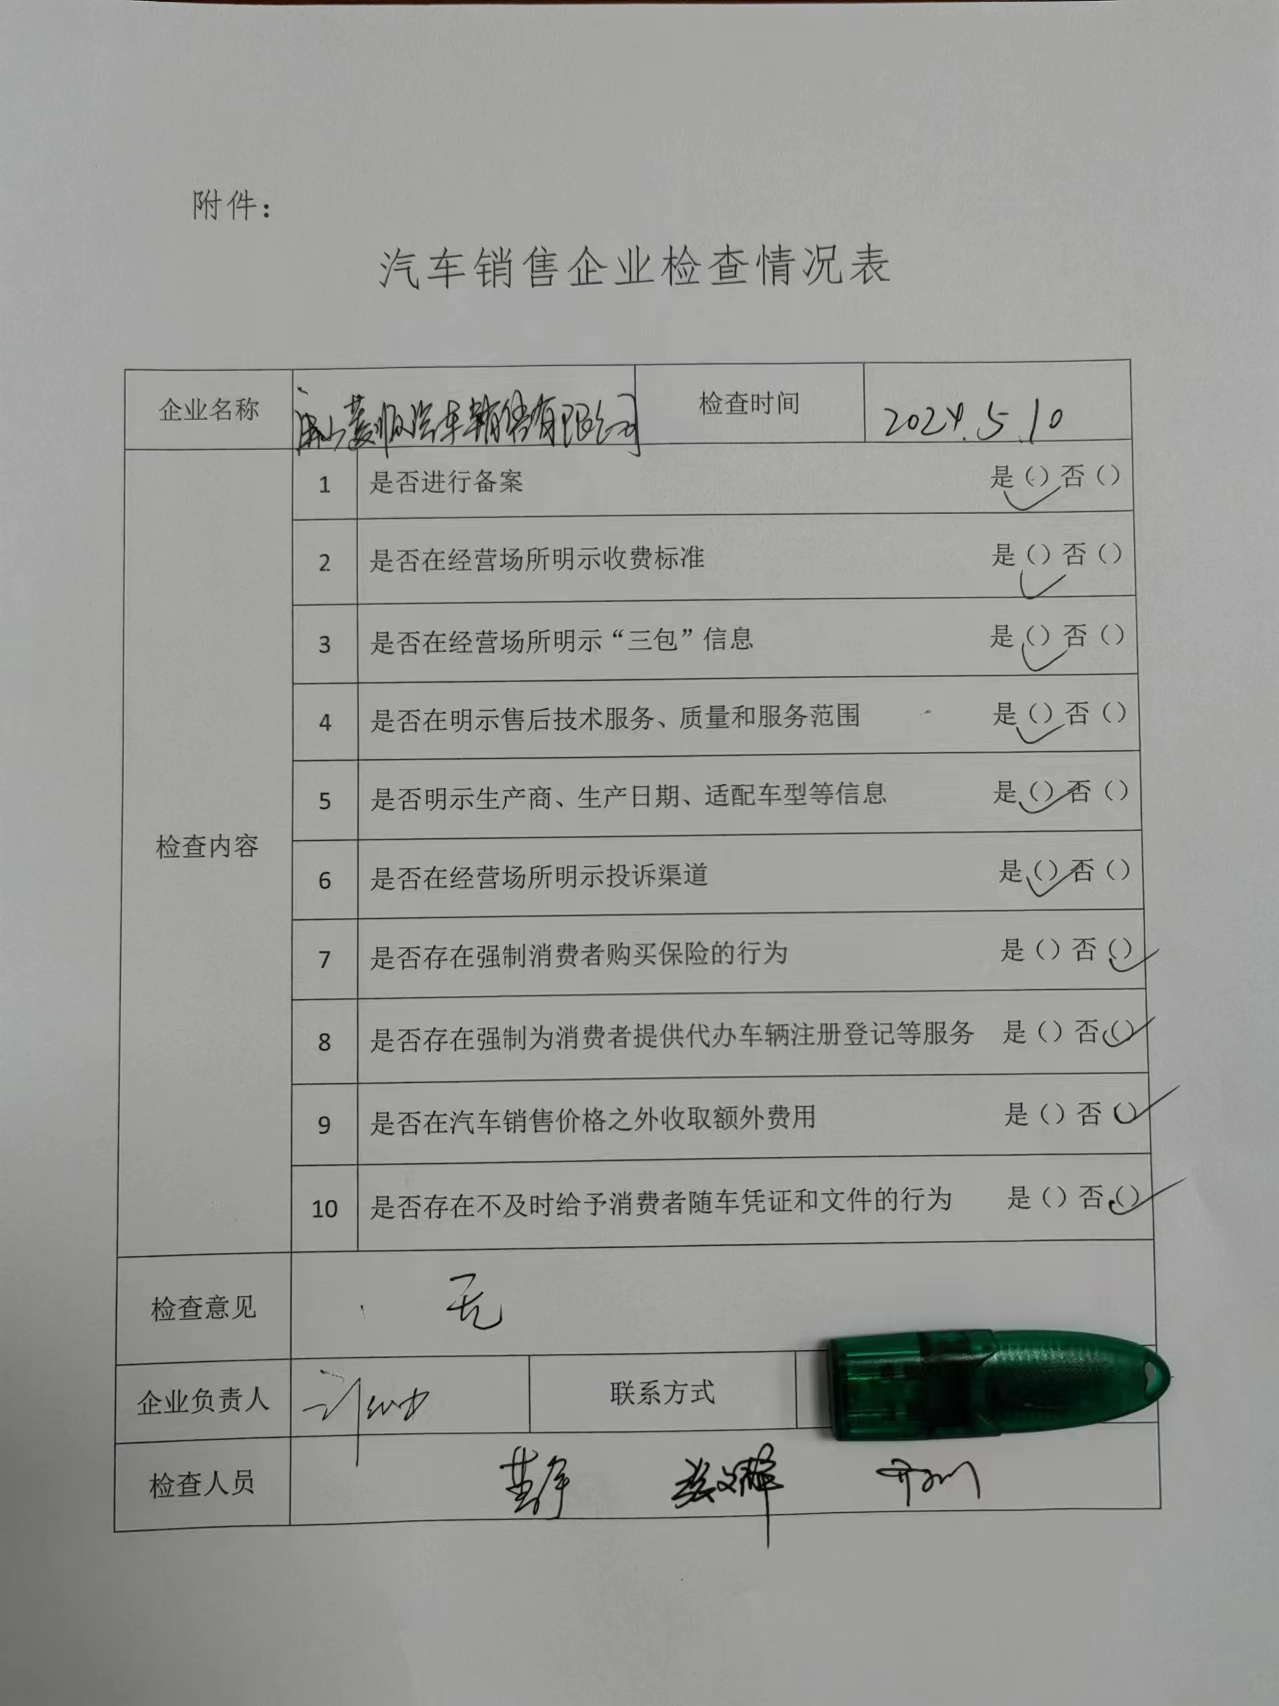 附件：
汽车销售企业检查情况表
企业名称 汽车销售有限公司 检查时间 2024.5.10
检查内容
1 是否进行备案 是（）否（）
2 是否在经营场所明示收费标准 是（）否（）
3 是否在经营场所明示“三包”信息 是（）否（）
4 是否在明示售后技术服务、质量和服务范围 是（）否（）
5 是否明示生产商、生产日期、适配车型等信息 是（）否（）
6 是否在经营场所明示投诉渠道 是（）否（）
7 是否存在强制消费者购买保险的行为 是（）否（）
8 是否存在强制为消费者提供代办车辆注册登记等服务 是（）否（）
9 是否在汽车销售价格之外收取额外费用 是（）否（）
10 是否存在不及时给予消费者随车凭证和文件的行为 是（）否（）
检查意见 无
企业负责人 联系方式
检查人员